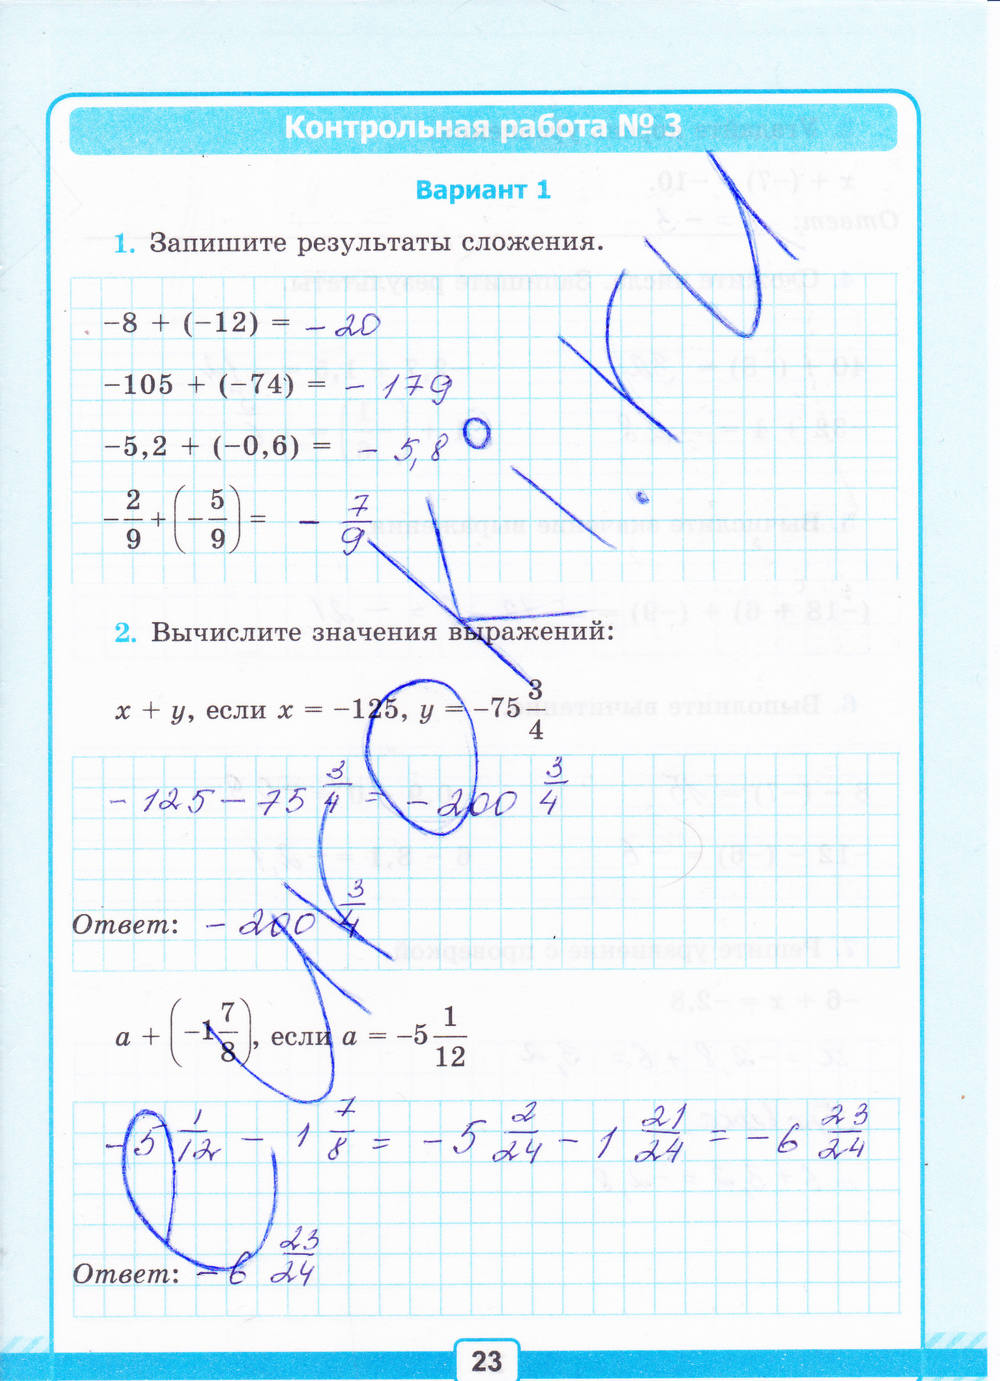 Контрольная работа № 3
Вариант 1
1. Запишите результаты сложения.
−8 + (−12) = − 20
−105 + (−74) = − 179
−5,2 + (−0,6) = − 5,8
−2/9 + (−5/9) = − 7/9
2. Вычислите значения выражений:
x + y, если x = −125, y = −75 3/4
− 125 − 75 3/4 = − 200 3/4
Ответ: − 200 3/4
a + (−1 7/8), если a = −5 1/12
− 5 1/12 − 1 7/8 = − 5 2/24 − 1 21/24 = − 6 23/24
Ответ: − 6 23/24
23